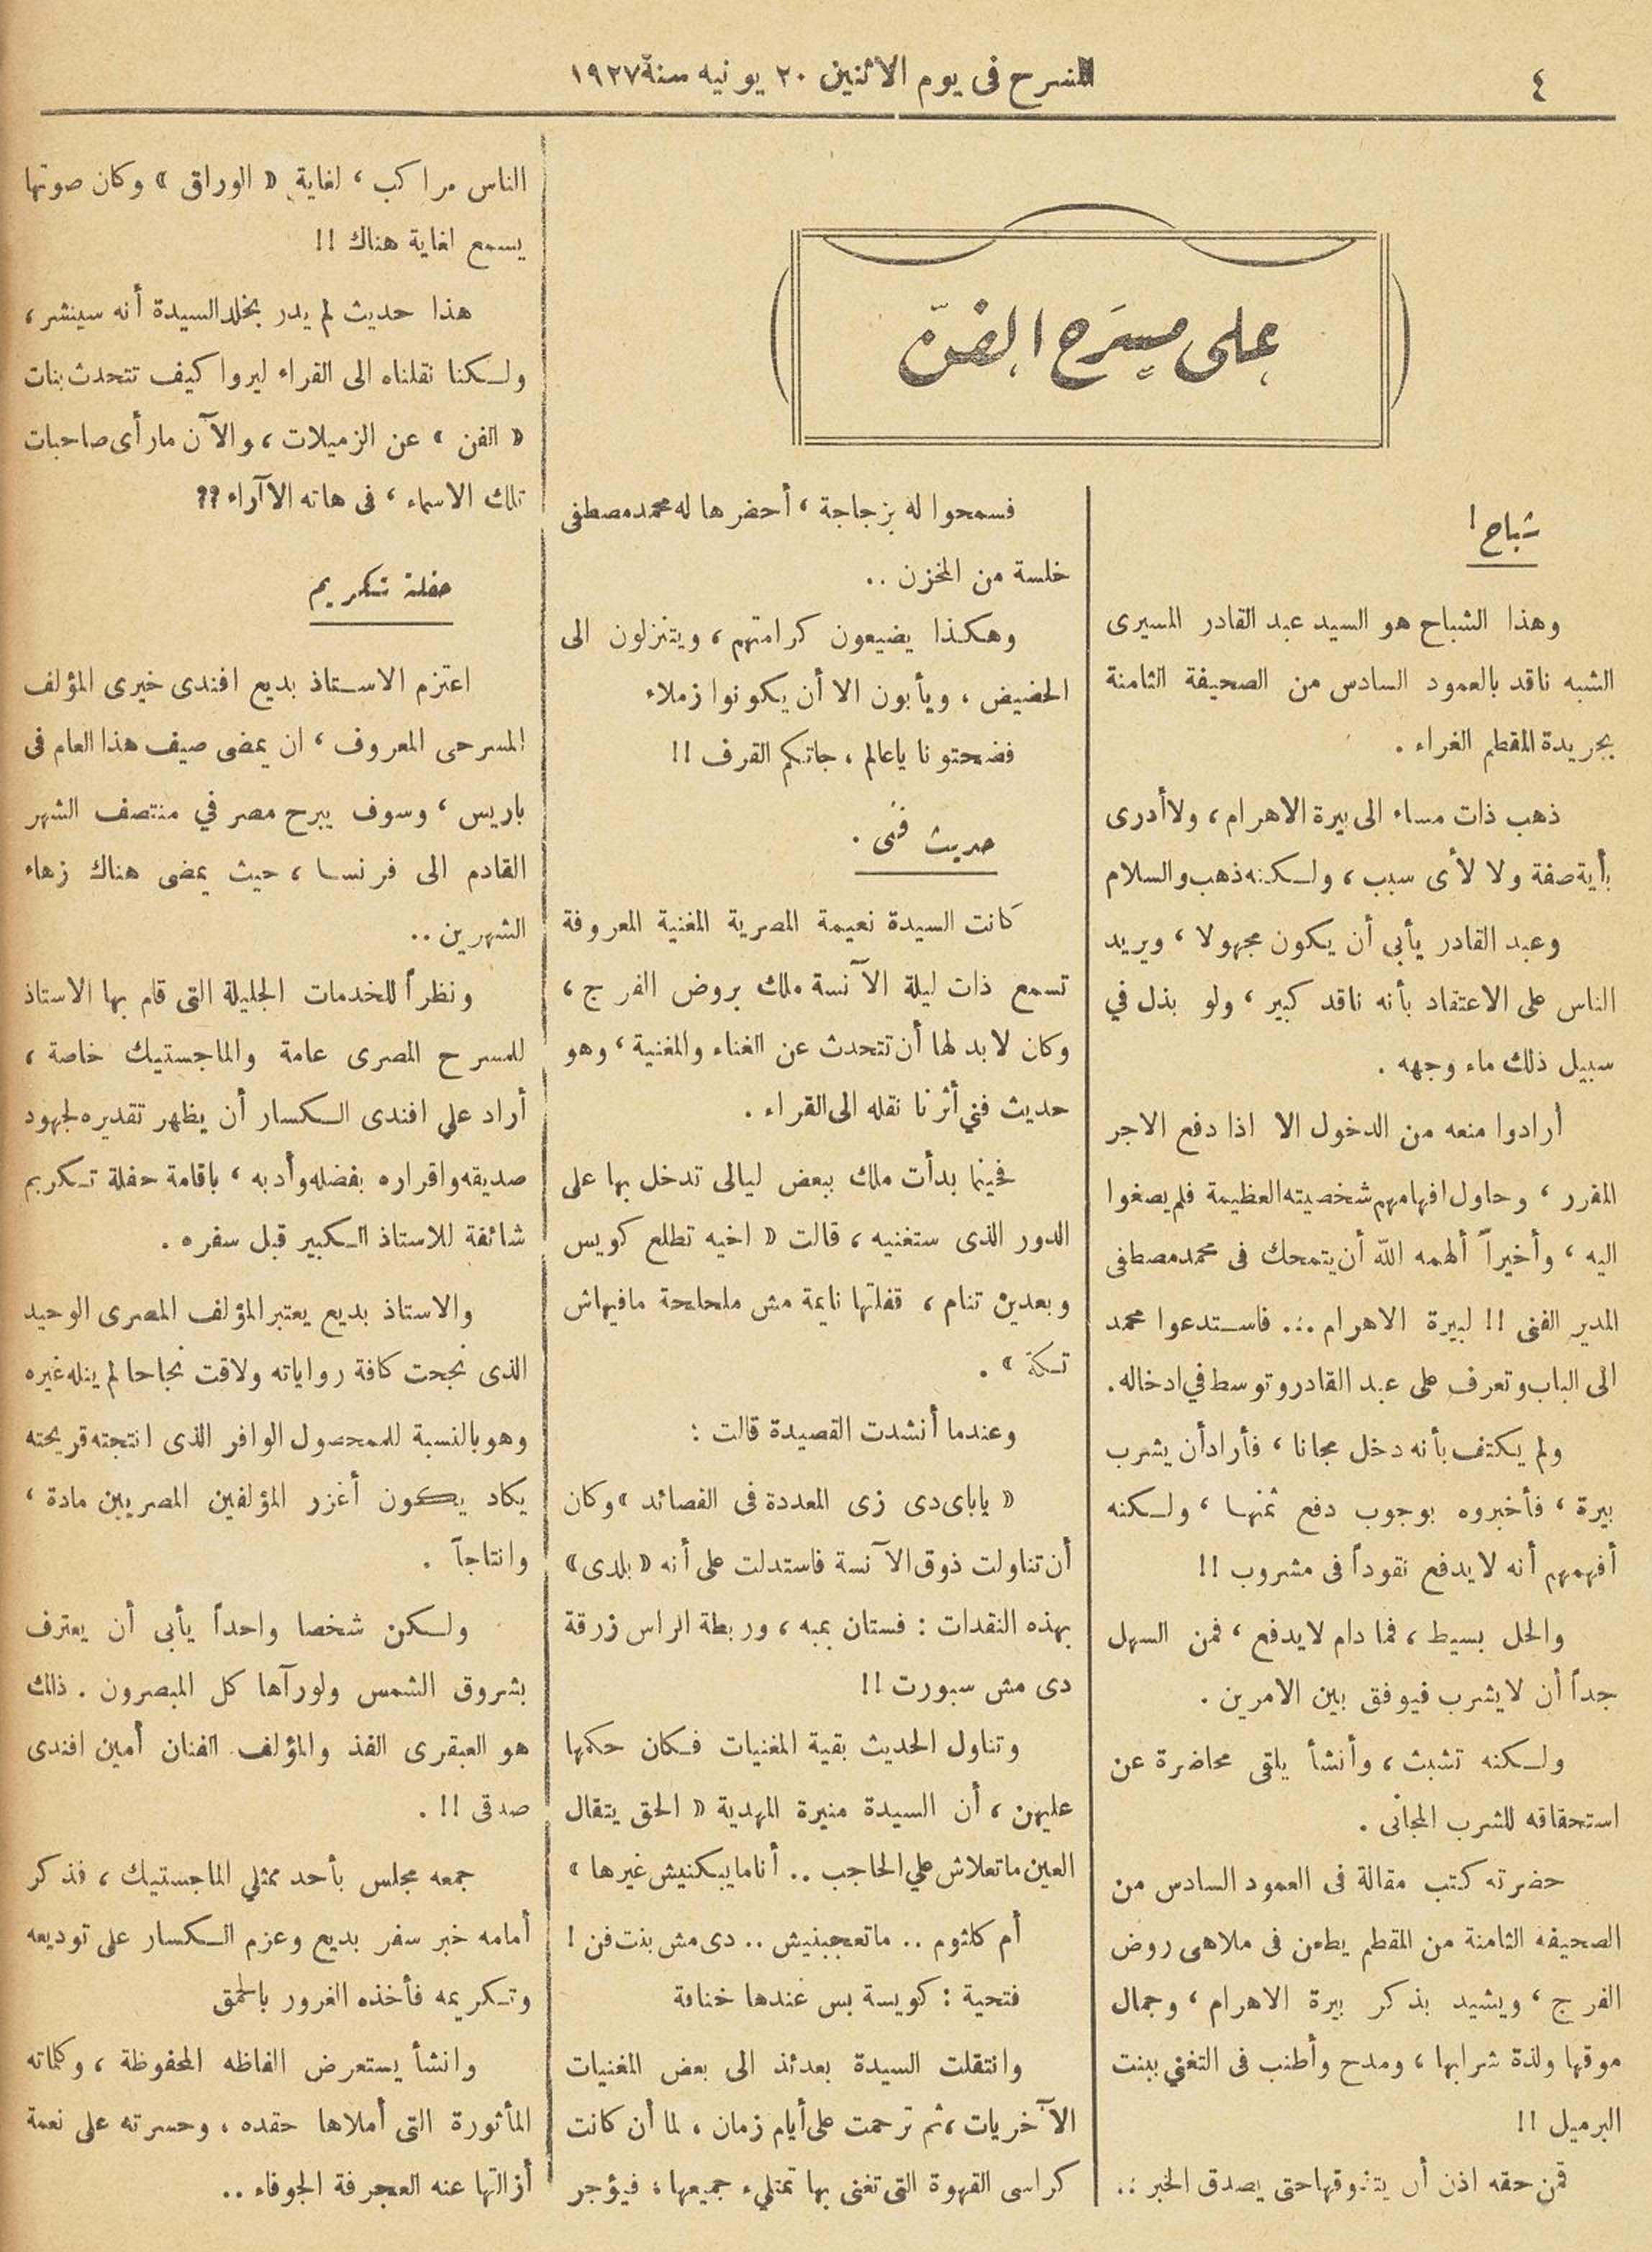 ٤
المسرح فى يوم الاثنين ٢٠ يونيه سنة ١٩٢٧
على مسرح الفن
شباح !
وهذا الشباح هو السيد عبد القادر المسيرى
الشبه ناقد بالعمود السادس من الصحيفة الثامنة
بجريدة المقطم الغراء .
ذهب ذات مساء الى بيرة الاهرام ، ولا أدرى
بأية صفة ولا لأى سبب ، ولكنه ذهب والسلام
وعبد القادر يأبى أن يكون مجهولا ، ويريد
الناس على الاعتقاد بأنه ناقد كبير ، ولو بذل في
سبيل ذلك ماء وجهه .
أرادوا منعه من الدخول الا اذا دفع الاجر
المقرر ، وحاول افهامهم شخصيته العظيمة فلم يصغوا
اليه ، وأخيراً ألهمه الله أن يتمحك فى محمد مصطفى
المدير الفنى !! لبيرة الاهرام ... فاستدعوا محمد
الى الباب وتعرف على عبد القادر وتوسط في ادخاله .
ولم يكتف بأنه دخل مجانا ، فأراد أن يشرب
بيرة ، فأخبروه بوجوب دفع ثمنها ، ولكنه
أفهمهم أنه لا يدفع نقوداً فى مشروب !!
والحل بسيط ، فما دام لا يدفع ، فمن السهل
جداً أن لا يشرب فيوفق بين الامرين .
ولكنه تشبث ، وأنشأ يلقى محاضرة عن
استحقاقه للشرب المجانى .
حضرته كتب مقالة فى العمود السادس من
الصحيفة الثامنة من المقطم يطعن فى ملاهى روض
الفرج ، ويشيد بذكر بيرة الاهرام ، وجمال
موقها ولذة شرابها ، ومدح وأطنب فى التغني ببنت
البرميل !!
فمن حقه اذن أن يتذوقها حتى يصدق الخبر ..
فسمحوا له بزجاجة ، أحضرها له محمد مصطفى
خلسة من المخزن ..
وهكذا يضيعون كرامتهم ، ويتنزلون الى
الحضيض ، ويأبون الا أن يكونوا زملاء
فضحتونا ياعالم ، جاتكم القرف !!
حديث فنى .
كانت السيدة نعيمة المصرية المغنية المعروفة
تسمع ذات ليلة الآنسة ملك بروض الفرج ،
وكان لا بد لها أن تتحدث عن الغناء والمغنية ، وهو
حديث فني أثرنا نقله الى القراء .
فحينما بدأت ملك ببعض ليالى تدخل بها على
الدور الذى ستغنيه ، قالت « اخيه تطلع كويس
وبعدين تنام ، قفلتها نايمة مش ملحلحة مافيهاش
تكة » .
وعندما أنشدت القصيدة قالت :
« ياباى دى زى المعددة فى القصائد » وكان
أن تناولت ذوق الآنسة فاستدلت على أنه « بلدى »
بهذه النقدات : فستان بمبه ، وربطة الراس زرقة
دى مش سبورت !!
وتناول الحديث بقية المغنيات فكان حكمها
عليهن ، أن السيدة منيرة المهدية « الحق يتقال
العين ماتعلاش علي الحاجب .. أنا مايبكنيش غيرها »
أم كلثوم .. ماتعجبنيش .. دى مش بنت فن !
فتحية : كويسة بس عندها خنافة
وانتقلت السيدة بعدئذ الى بعض المغنيات
الآخريات ، ثم ترحمت على أيام زمان ، لما أن كانت
كراسى القهوة التى تغنى بها تمتلىء جميعها ، فيؤجر
الناس مراكب ، لغاية « الوراق » وكان صوتها
يسمع لغاية هناك !!
هذا حديث لم يدر بخلد السيدة أنه سينشر ،
ولكنا نقلناه الى القراء ليروا كيف تتحدث بنات
« الفن » عن الزميلات ، والآن مارأى صاحبات
تلك الاسماء ، فى هاته الاآراء ??
حفلة تكريم
اعتزم الاستاذ بديع افندى خيرى المؤلف
المسرحى المعروف ، ان يمضى صيف هذا العام فى
باريس ، وسوف يبرح مصر في منتصف الشهر
القادم الى فرنسا ، حيث يمضى هناك زهاء
الشهرين ..
ونظراً للخدمات الجليلة التى قام بها الاستاذ
للمسرح المصرى عامة والماجستيك خاصة ،
أراد على افندى الكسار أن يظهر تقديره لجهود
صديقه واقراره بفضله وأدبه ، باقامة حفلة تكريم
شائفة للاستاذ الكبير قبل سفره .
والاستاذ بديع يعتبر المؤلف المصرى الوحيد
الذى نجحت كافة رواياته ولاقت نجاحا لم ينله غيره
وهو بالنسبة للمحصول الوافر الذى انتجته قريحته
يكاد يكون أغزر المؤلفين المصريين مادة ،
وانتاجاً .
ولكن شخصا واحداً يأبى أن يعترف
بشروق الشمس ولو رآها كل المبصرون . ذلك
هو العبقرى الفذ والمؤلف الفنان أمين افندى
صدقى !! .
جمعه مجلس بأحد ممثلي الماجستيك ، فذكر
أمامه خبر سفر بديع وعزم الكسار على توديعه
وتكريمه فأخذه الغرور بالحمق
وانشأ يستعرض الفاظه المحفوظة ، وكلماته
المأثورة التى أملاها حقده ، وحسرته على نعمة
أزالتها عنه العجرفة الجوفاء ..